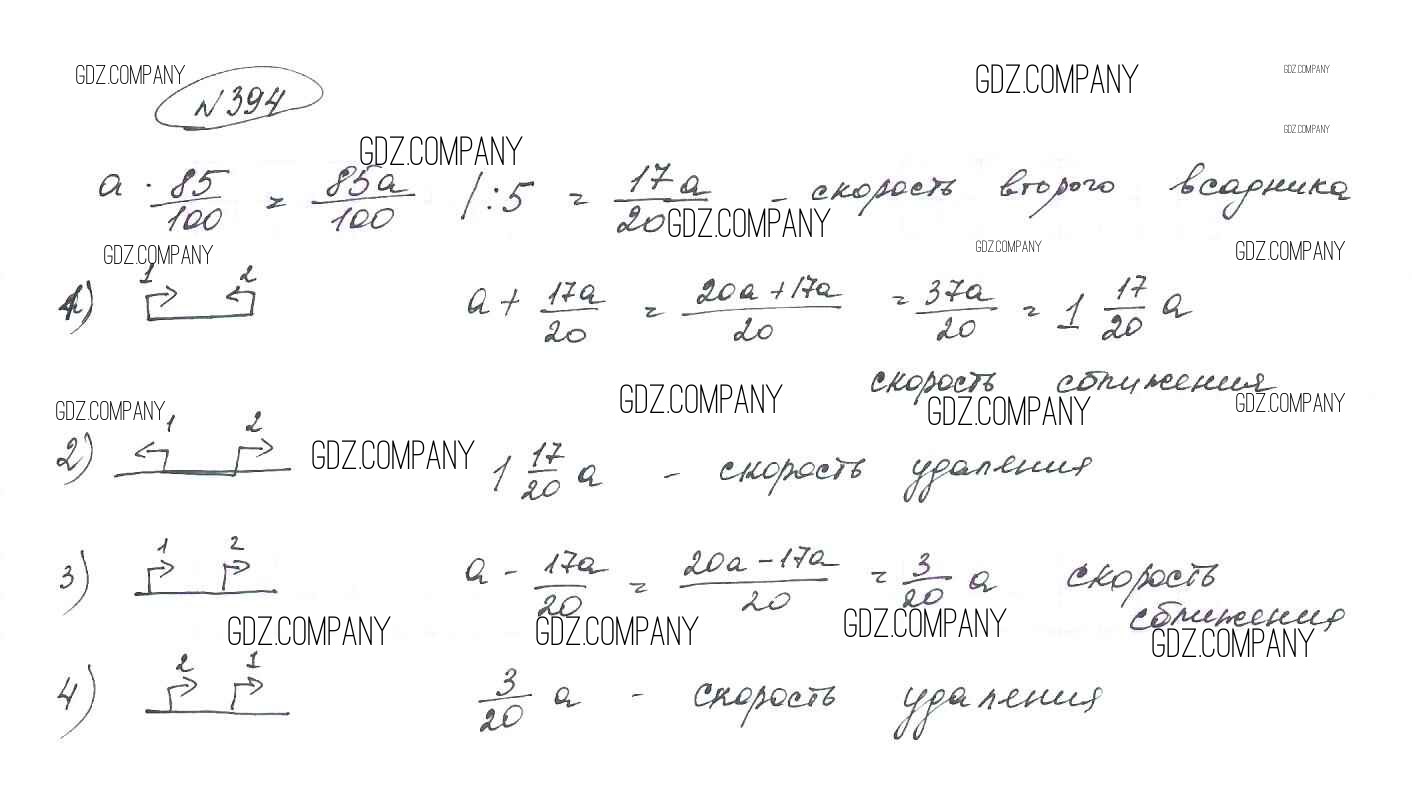 GDZ.COMPANY GDZ.COMPANY GDZ.COMPANY
N394
GDZ.COMPANY
GDZ.COMPANY
a · 85/100 = 85a/100 |:5 = 17a/20 - скорость второго всадника
GDZ.COMPANY
GDZ.COMPANY GDZ.COMPANY GDZ.COMPANY
1 2
1) a + 17a/20 = 20a+17a/20 = 37a/20 = 1 17/20 a
скорость сближения
GDZ.COMPANY GDZ.COMPANY
GDZ.COMPANY GDZ.COMPANY
1 2
2) 1 17/20 a - скорость удаления
GDZ.COMPANY
1 2
3) a - 17a/20 = 20a-17a/20 = 3/20 a скорость
сближения
GDZ.COMPANY GDZ.COMPANY GDZ.COMPANY GDZ.COMPANY
2 1
4) 3/20 a - скорость удаления